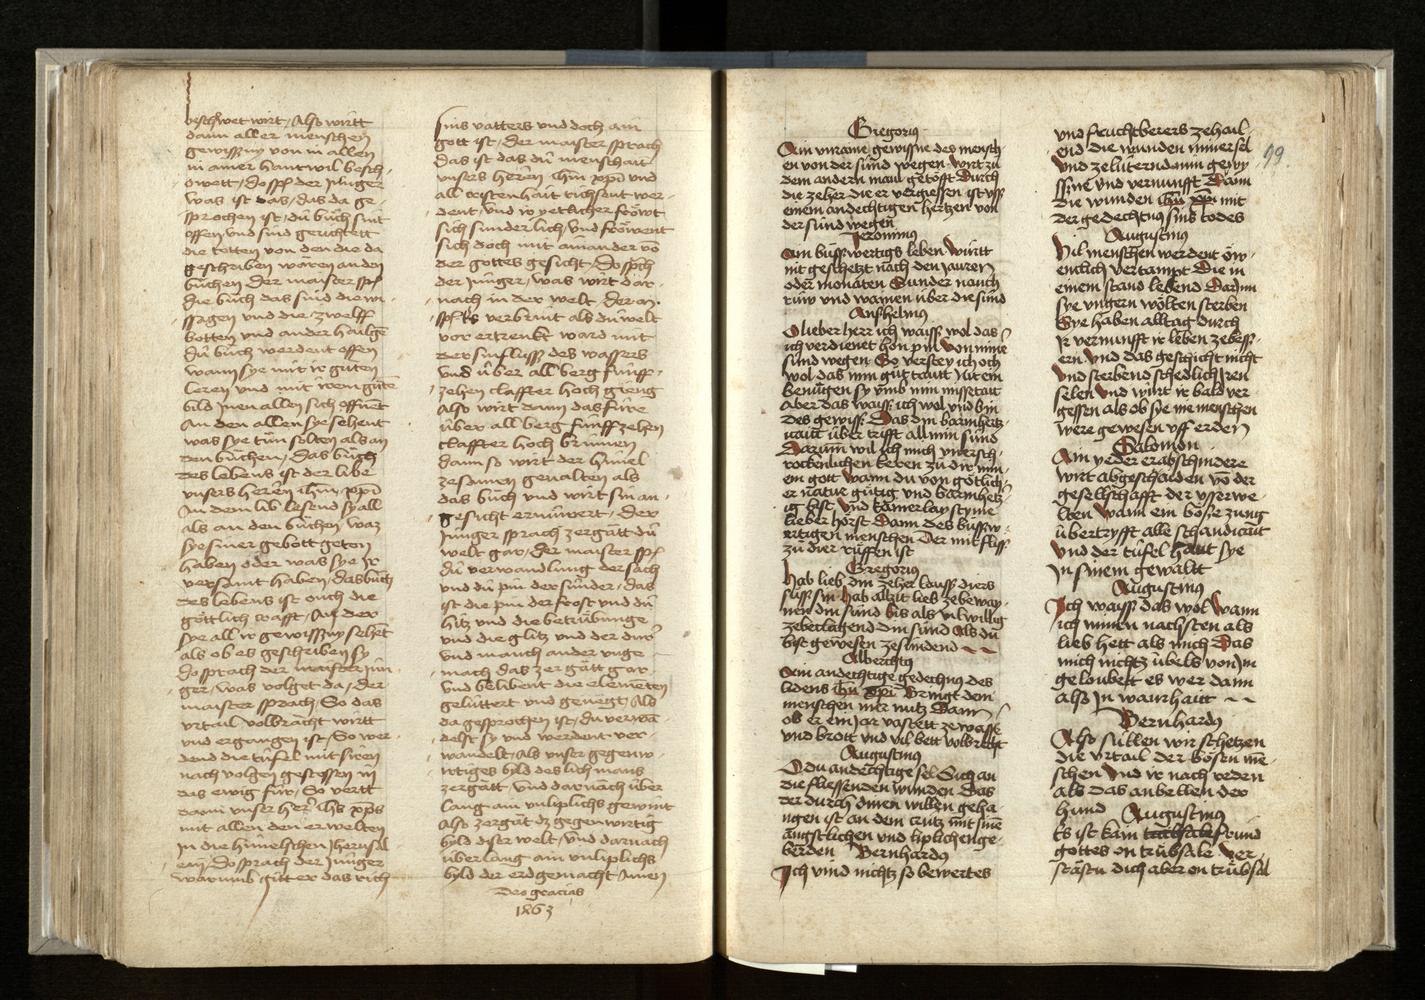 beschwet wirt / Also wirtt
dann aller menschen
gewissny von in allen
in ainer hantwil besch
owett / Do spch der Junger
was ist das / das da ge
sprochen ist / dü büch sint
offen und sind gerichtett
die totten von den die da
geschriben wären an den
büchen der maister spch
Die büch das sind die wi
ssagen und die zwelff
botten und ander hailge
dü büch werdent offen
wann sye mit ir guten
leren und mit irem gute
bild Jnen allen sich offnet
An den allen sye sehent
was sye tün solten als an
den büchen / Das büch
des lebens ist der libe
unsers heren ihm xpi
An dem lib lesend sy all
als an den büchen waz
sye siner gebott geton
haben oder was sye Jr
versumt haben / das büch
des lebens ist ouch die
götlich crafft / An der
sye all ir gewissny sehet
als ob es geschriben sy
Do sprach der maister
ger / was volget da / der
maister sprach / So das
urtail volbracht wirtt
und ergangen ist / So wer
dend die tüfel mit siren
nach volgen gestossen in
das ewig für / So vertt
dann unser her ihs xps
mit allen den erwelten
in die himelschen Jherusal
em / Do sprach der Jünger
warumb gitt er das rich
sins vatters und doch ain
gott ist / Der maister sprach
das ist das dü menschait
unsers heren ihm xpi und
all cristenhait richsent wer
dent / und ir yetlicher fröwt
sich sunderlich / und fröwent
sich doch mit ainander vo
der gottes gesicht / Do spch
der Jünger / was wirt dar
nach in der welt / der m
spch es verbrint als dü welt
vor ertrenkt ward mit
der sinfluss des wassers
und über all berg fünff
zehen claffter hoch gieng
Also wirt dann das füre
über all berg fünff zehen
claffter hoch brinnen
dann so wirt der himel
zesamen gevalten als
das büch und wirt sin an
gesicht ernüwert / Der
Junger sprach zergätt dü
welt gar / der maister spch
dü verwandlung der sach
und dü pin der sünder / das
ist die pin der frost und dü
hitz und die betrübunge
und die glitz und der dur
und manch ander unge
mach das zergätt gar
und belibent die elementen
gelüttert und gerecht / Als
da gesprochen ist / du verwa
delst sy und werdent ver
wandelt / Als unser gegenw
irtiges byld des lichmans
zergätt / und darnach über
lang ain unliplichs gewint
Also zergät dz gegenwirtig
byld diser welt / und darnach
überlang ain unliplichs
byld der erd gemacht
Deo gracias
1463
Gregorius
Ain unraine gewissne des mensch
en von der sünd wegen wirt zü
dem andern maul getöfft Durch
die zeher die er vergiessen ist uss
einem andechtigen hertzen von
der sünd wegen
Jeronimus
Ain büsswertigs leben wirtt
nit geschetzt nach den Jauren
oder monaten Sunder nauch
rüw und wainen über die sünd
Anshelmus
O lieber herr ich waiss wol das
ich verdienet hon pin von mine
sünd wegen So verstey ich och
wol das min gut tautt Nit ein
benügen sy umb min missetaut
Aber das waiss ich wol und bin
des gewiss Das din barmhertz
ikait über trifft all min sünd
Darum wil ich mich unersch
rockenlichen keren zü dir min
ein gott wann du von götlich
er natur gütig und barmhertz
ig bist und kainerlay styme
lieber hörst Dann des büssw
ertigen menschen Der mit fliss
zu dier rüffen ist
Gregorius
hab lieb din zeher lauss diers
süss sin hab allzit lieb ze beway
nen din sünd bis als vil willig
ze beclagend din sünd als du
bist gewesen ze sindend
Albertus
Ain andechtige gedechnus des
lidens ihu xpi Bringt dem
menschen mer nutz Dann
ob er ein Jar vastett ze wasser
und brott und vil bett volbrecht
Augustinus
O du andechtige sel Sich an
die fliessenden wunden Das
der durch dinen willen geha
ngen ist an dem crütz mit sine
ängstlichen und liplichen ge
berden Bernhardus
Jch vind nichtz so bewertes
und fruchtberers ze hail
end die wunden miner sel
und ze lütern dann gewy
ssne und vernunfft Dann
Die wunden ihu xpi mit
der gedechtnus sins todes
Augustinus
Vil menschen werdent öw
enclich vertampt Die in
einem stand lebend Darinn
sye ungern wölten sterben
Sye haben alltag durch
Jr vernunfft ir leben ze bess
ern und das geschicht nicht
und sterbend schedlich Jren
selen und wirt ir bald ver
gessen als ob sye nie menschen
were gewesen uff erden
Salomon
Ain yeder erabschindere
wirt abgeschaiden vo der
gesellschafft der usserwe
lten wann ein böse zung
übertryfft alle schandkait
und der tüfel haut sye
Jn sinem gewaltt
Augustinus
Jch waiss das wol wann
ich minen nächsten als
lieb hett als mich Das
mich nichtz übels von Jm
geloubett es wer dann
also Jn waurhait
Bernhardus
Also süllen wir schetzen
die urtail der bösen me
schen und ir nach reden
als das anbellen der
hund Augustinus
Es ist kain fründ
gottes on trübsale ver
stastu dich aber on trübsal
99.